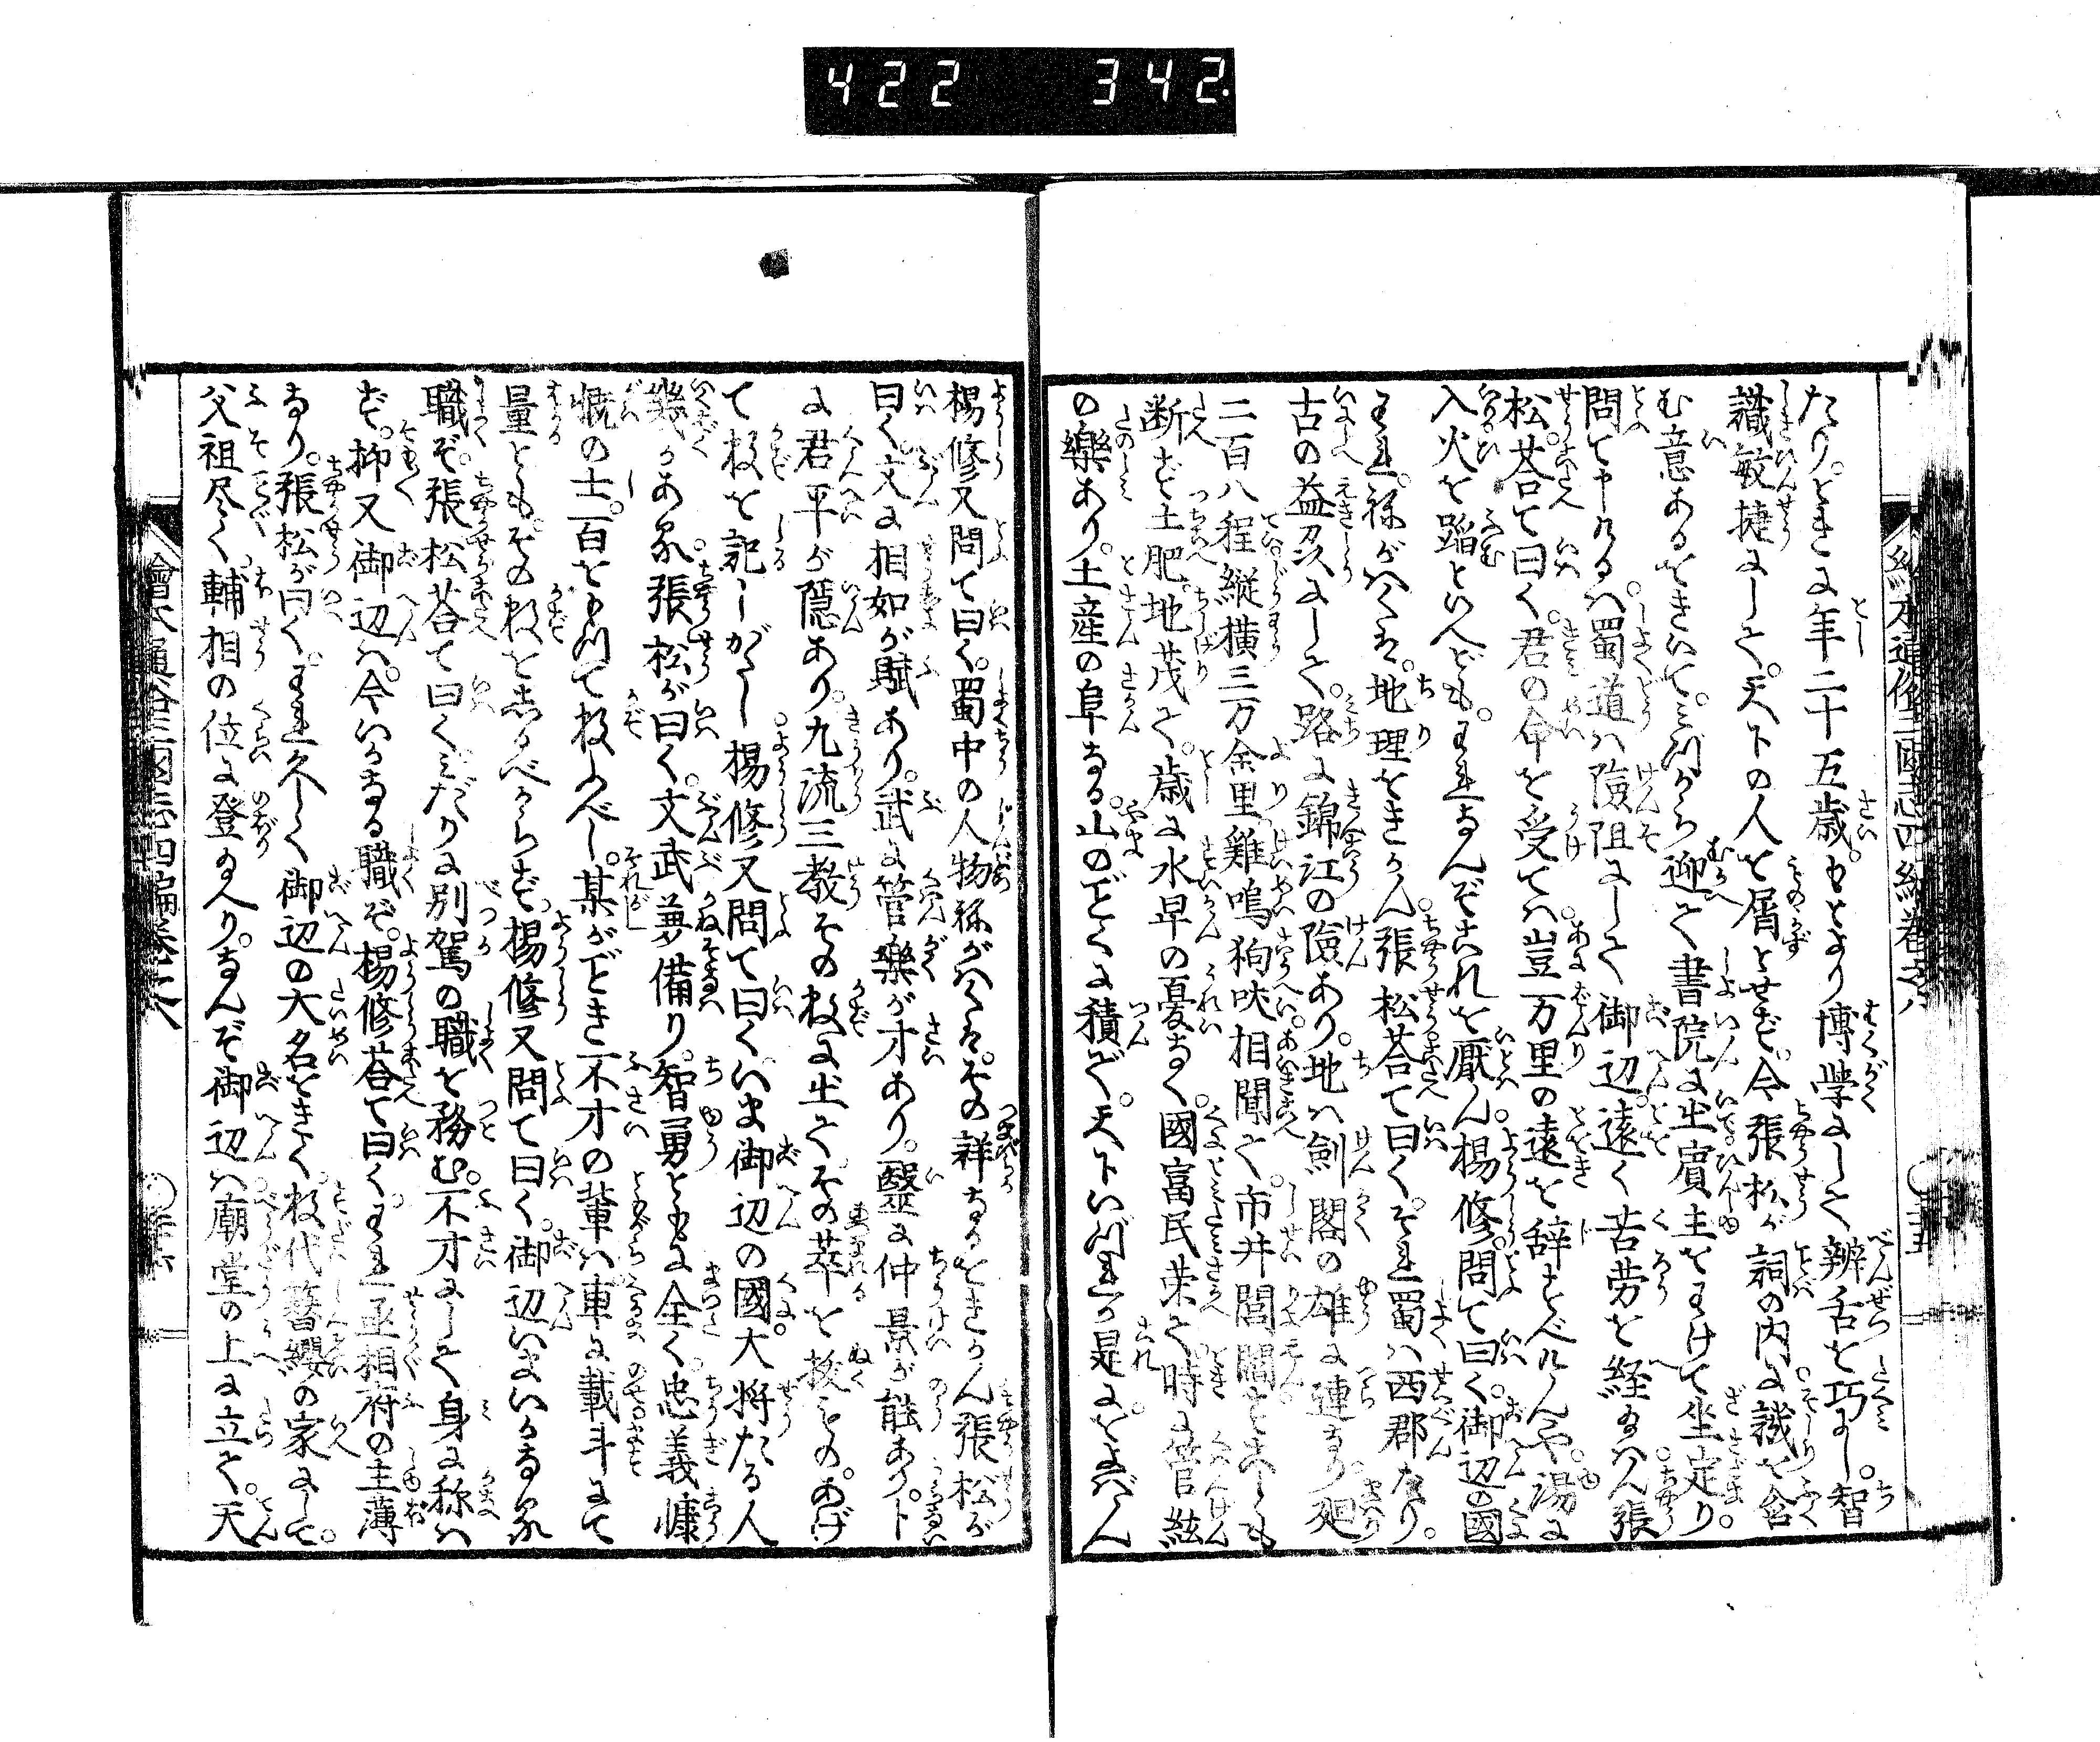 422 342
たり。ときに年二十五歳。もとより博学にして辨舌を巧にし。智
識敏捷にして。天下の人を屑とせず。今張松が詞の内に譏を含
む意あるをきいて。みづから迎て書院に出賓主をわけて坐定り。
問て申けるハ蜀道ハ險阻にして御辺。遠く苦労を経給ハん張
松。荅て曰く。君の命を受てハ。豈万里の遠を辞すべけんや。湯に
入火を蹈といへども。われなんぞこれを厭ん楊修。問て曰く。御辺の國
われ。稱がハくは。地理をきかん。張松荅て曰く。それ蜀ハ西郡たり。
古の益州にして。路に錦江の險あり。地ハ劍閣の雄に連なり廻
二百八程縦横三万余里雞鳴狗吠相聞て。市井閭閻をこしも
断ず土肥。地茂て。歳に水旱の憂なく。國富民栄て。時に管絃
の樂あり。土産の阜なる。山のごとくに積ぞ。天下いづれか是におよばん
楊修又問て曰く。蜀中の人物稱がハくは。その詳なるをきかん張松が
曰く。文に相如が賦あり。武に管樂が才あり。醫に仲景が能あり。ト
に君平が隠あり。九流三教その数に出て。その萃を抜もの。あげ
て数を記しがたし楊修又問て曰くいま御辺の國。大将たる人
幾かある。張松が曰く。文武兼備り。智勇ともに全く。忠義慷
慨の士。百をもつて数ふべし。某がごとき不才の輩ハ車に載斗にて
量とも。その数をしるべからず。楊修又問て曰く。御辺いまいかなる
職ぞ。張松荅て曰く。みだりに別駕の職を務む。不才にして身に称ハ
ず。抑又御辺ハ。今いかなる職ぞ。楊修荅て曰く。われ丞相府の主薄
なり。張松が曰く。われ久しく御辺の大名をきく。数代簪纓の家にして。
父祖尽く輔相の位に登る人り。なんぞ御辺ハ廟堂の上に立て。天